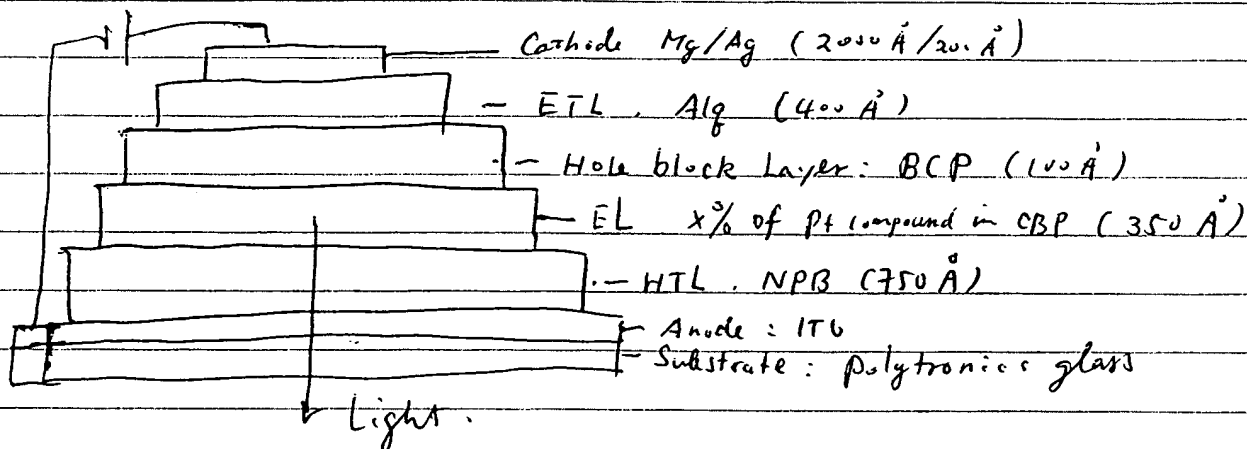 Cathode Mg/Ag (2000 Å/200 Å)
ETL. Alq (400 Å)
Hole block Layer: BCP (100 Å)
EL x% of Pt compound in CBP (350 Å)
HTL. NPB (750 Å)
Anode: ITO
Substrate: polytronics glass
Light.